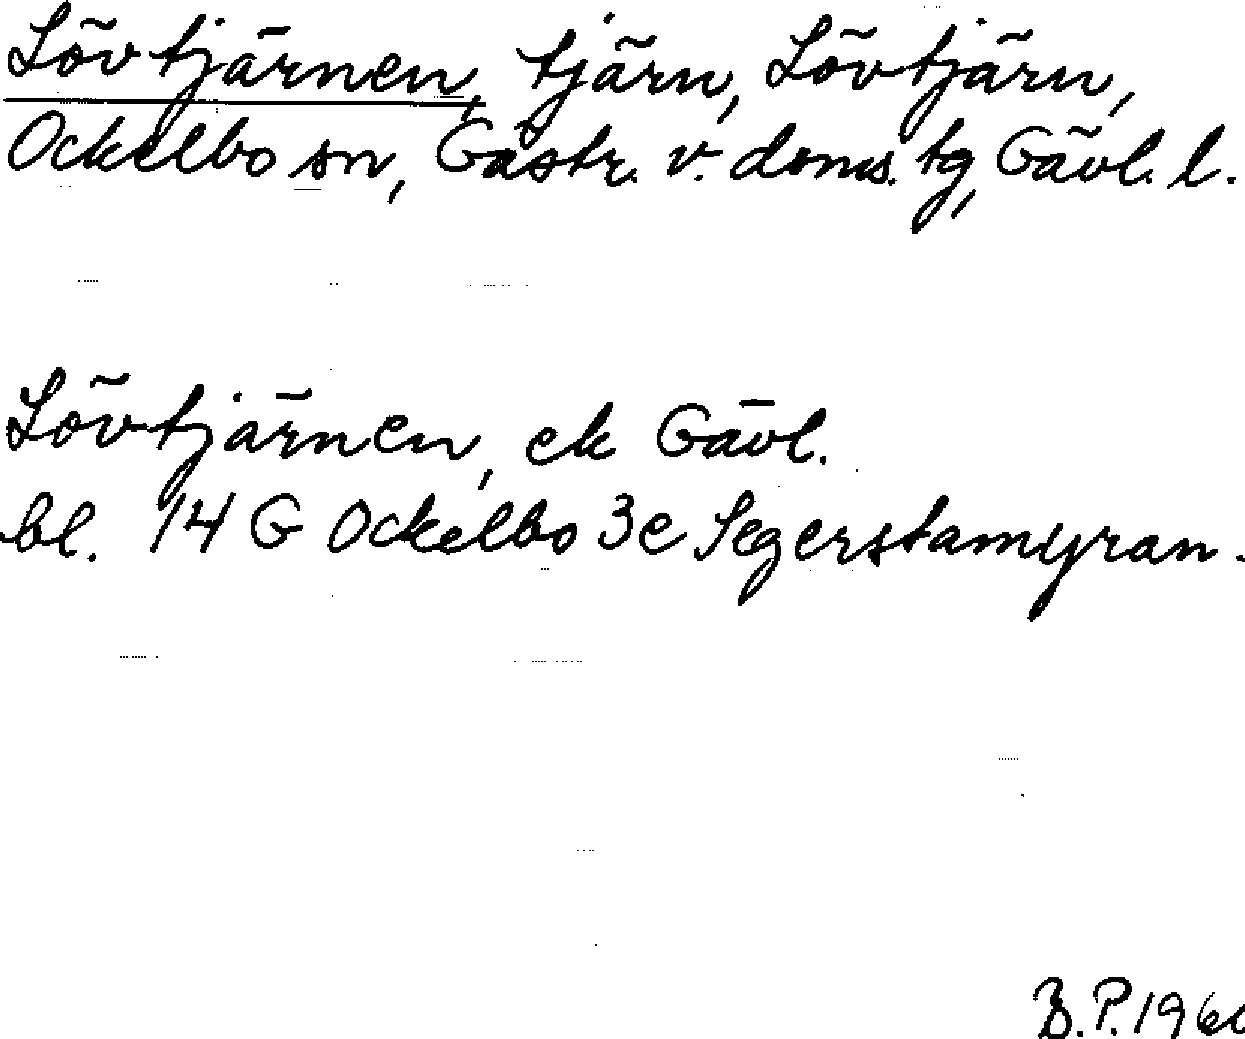 Lövtjärnen, tjärn, Lövtjärn,
Ockelbo sn, Gästr. v. doms. tg, Gävl. l.
Lövtjärnen, ek Gävl.
bl. 14 G Ockelbo 3e Segerstamyran.
B.P.